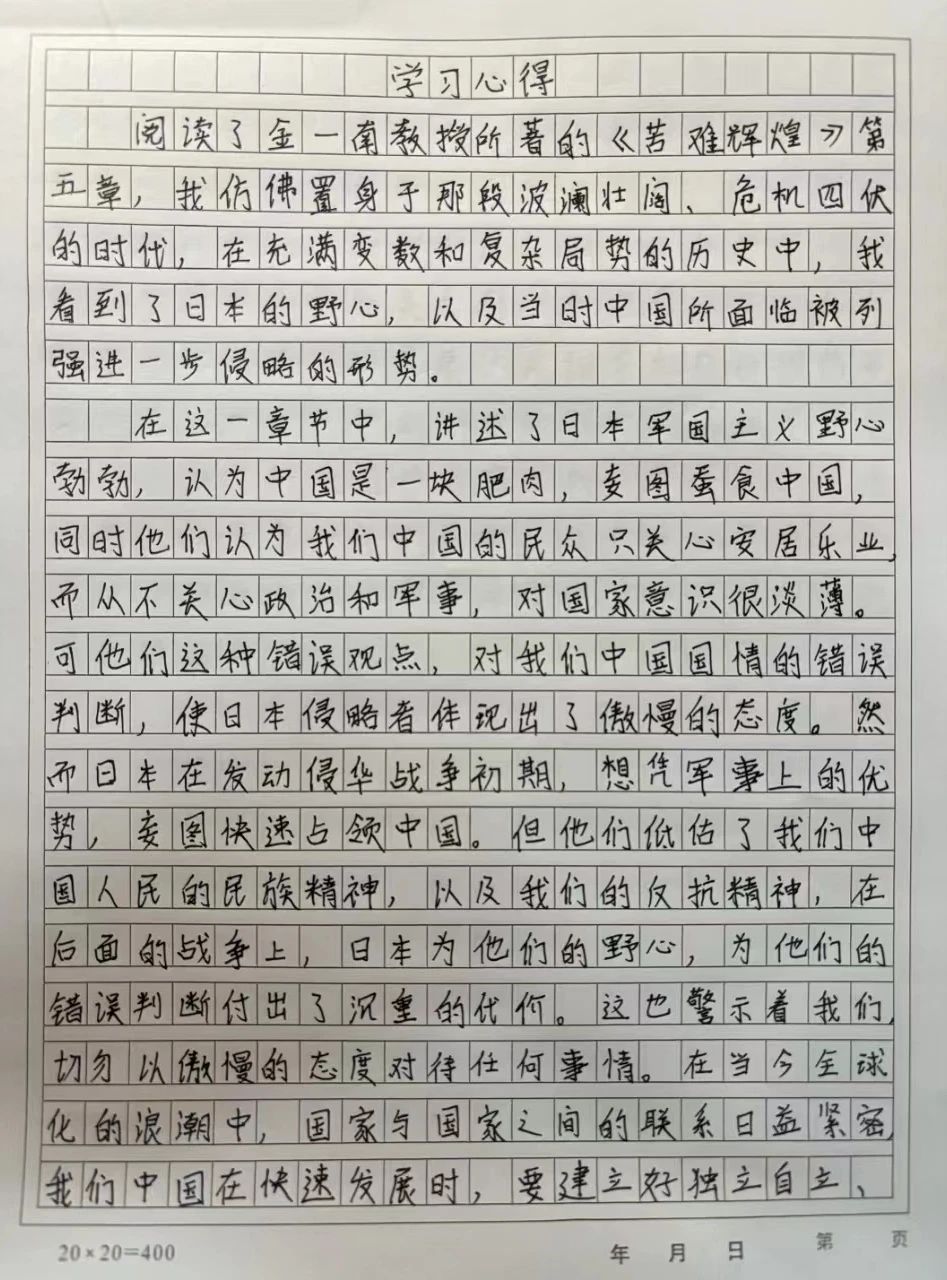 学习心得
阅读了金一南教授所著的《苦难辉煌》第
五章，我仿佛置身于那段波澜壮阔、危机四伏
的时代，在充满变数和复杂局势的历史中，我
看到了日本的野心，以及当时中国所面临被列
强进一步侵略的形势。
在这一章节中，讲述了日本军国主义野心
勃勃，认为中国是一块肥肉，妄图蚕食中国，
同时他们认为我们中国的民众只关心安居乐业，
而从不关心政治和军事，对国家意识很淡薄。
可他们这种错误观点，对我们中国国情的错误
判断，使日本侵略者体现出了傲慢的态度。然
而日本在发动侵华战争初期，想凭军事上的优
势，妄图快速占领中国。但他们低估了我们中
国人民的民族精神，以及我们的反抗精神，在
后面的战争上，日本为他们的野心，为他们的
错误判断付出了沉重的代价。这也警示着我们，
切勿以傲慢的态度对待任何事情。在当今全球
化的浪潮中，国家与国家之间的联系日益紧密，
我们中国在快速发展时，要建立好独立自立、
20×20=400 年 月 日 第 页